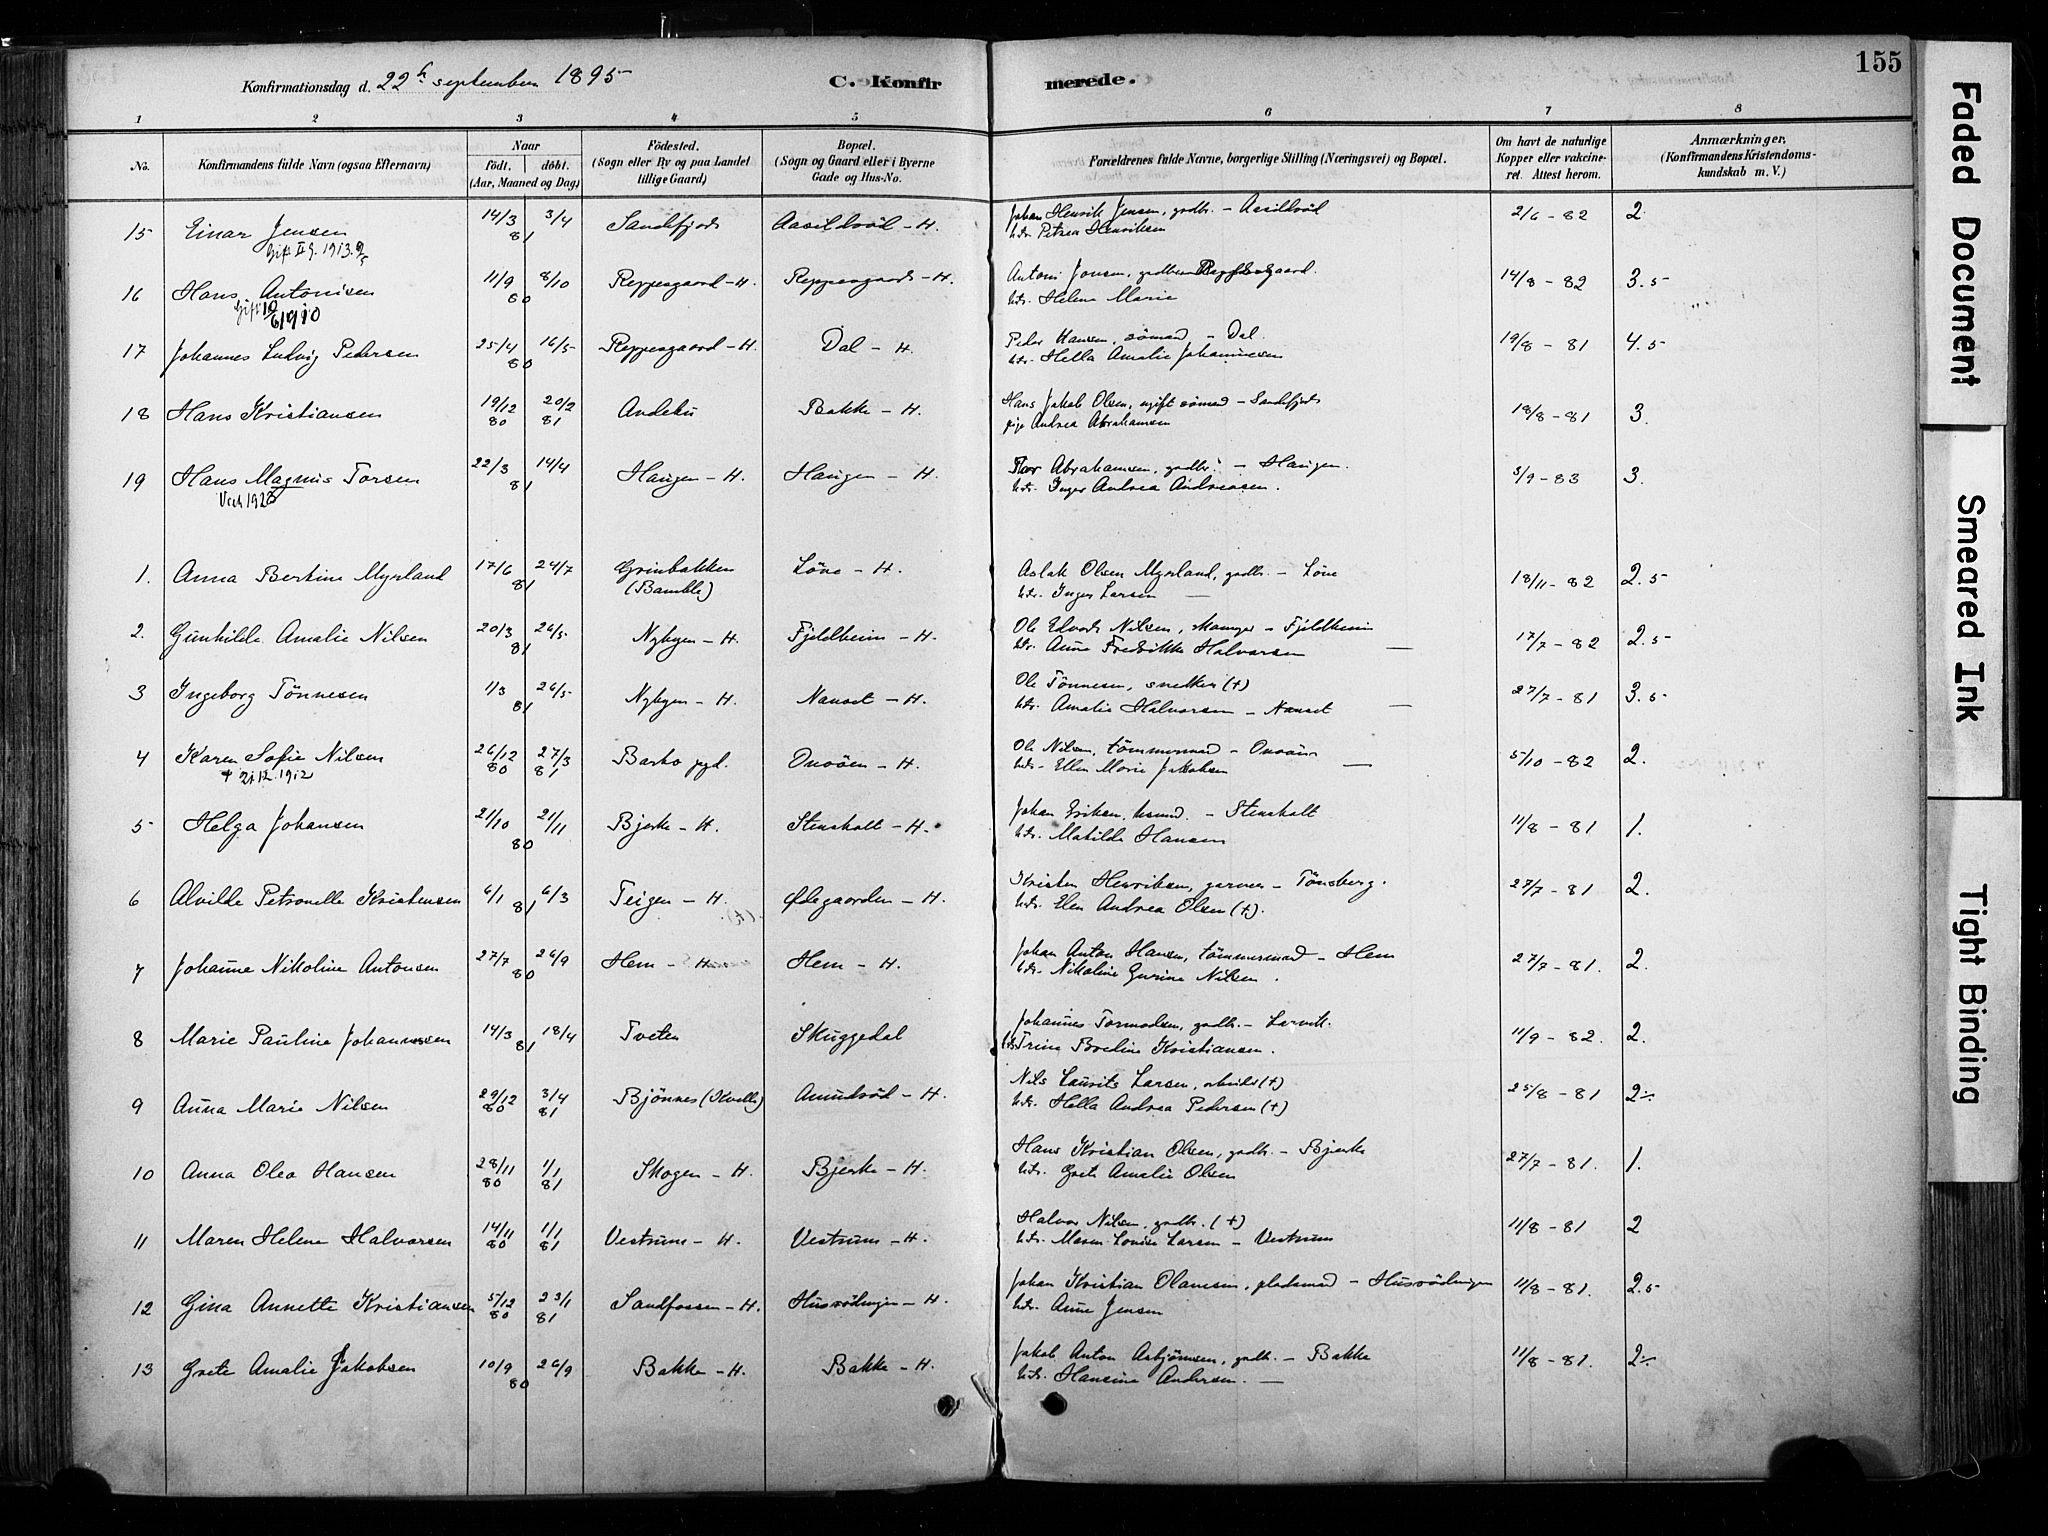 155
Konfirmationsdag d. 22de september 1895
C. Konfirmerede.
1 2 3 4 5 6 7 8
No. Konfirmandens fulde Navn (ogsaa Efternavn) Naar født. døbt. (Aar, Maaned og Dag) Fødested. (Sogn eller By og paa Landet tillige Gaard) Bopæl. (Sogn og Gaard eller i Byerne Gade og Hus-No. Forældrenes fulde Navne, borgerlige Stilling (Næringsvei) og Bopæl. Om havt de naturlige Kopper eller vakcineret. Attest herom. Anmærkninger, (Konfirmandens Kristendomskundskab m. V.)
15 Einar Jensen 14/3 3/4 81 Sandefjord Aasildrød - H. Johan Henrik Jensen, gadbr. - Aasildrød 2/6 - 82 2
Gift II G. 1913. htr. Petrea Henriksen
16 Hans Antonisen 11/9 8/10 80 Reppesgaard - H. Reppesgaard - H. Antoni Jonsen, gadbr. 14/8 - 82 3.5
Gift 10/6 1910 htr. Helene Marie
17 Johannes Ludvig Pedersen 25/4 16/5 80 Reppesgaard - H. Dal - H. Peder Hansen, sömad - Dal. 19/8 - 81 4.5
htr. Hella Amalie Johannesen
18 Hans Kristiansen 19/12 80 20/2 81 Andebu Bakke - H. Hans Jakob Olsen, ugift sömad - Sandefjord 18/8 - 81 3.
pige Andrea Abrahamsen
19 Hans Magnus Torsen 22/3 14/4 81 Haugen - H. Haugen - H. Thor Abrahamsen, gadbr. - Haugen. 3/9 - 83 3.
htr. Inger Andrea Andreasen.
1. Anna Bertine Myrland 17/6 24/7 81 Grinbakken (Bamble) Löve - H. Aslak Olsen Myrland, gadbr. - Löve 18/11 - 82 2.5
htr. Inger Larsen —
2. Gunhilde Amalie Nilsen 20/3 26/5 81 Nybyen - H. Fjeldheim - H. Ole Edvard Nilsen, - Fjeldheim 17/7 - 82 2.5
htr. Anne Fredrikke Halvorsen —
3 Ingeborg Tönnesen 1/3 26/5 81 Nybyen - H. Nanset - H. Ole Tönnesen, snekker (+) 27/7 - 81 3.5
htr. Amalie Halvorsen - Nanset —
4 Karen Sofie Nilsen 26/12 80 27/3 81 Barko pgd. Onsöen - H. Ole Nilsen, tömmermand - Onsöen 5/10 - 82 2.
+ 1912 htr. Ellen Marie Jakobsen —
5 Helga Johansen 21/10 21/11 80 Bjerke - H. Stensholt - H. Johan Eriksen, husmd. - Stensholt 11/8 - 81 1.
htr. Matilde Hansen
6 Alvilde Petronelle Kristensen 6/1 6/3 81 Teigen - H. Ødegaarden - H. Kristen Henriksen, garver - Tönsberg. 27/7 - 81 2.
htr. Elen Andrea Olsen (+).
7 Johanne Nikoline Antonsen 27/7 26/9 80 Hem - H. Hem - H. Johan Anton Hansen, tömmermand - Hem 27/7 - 81. 2.
htr. Nikoline Gurine Nilsen.
8 Marie Pauline Johannessen 14/3 18/4 81 Tveten Skuggedal Johannes Tormodsen, gadbr. - Larvik. 11/9 - 82. 2.
htr. Trine Boeline Kristiansen.
9 Anna Marie Nilsen 29/12 80 3/4 81 Bjönnes (Kvelle) Amundrød - H. Nils Laurits Larsen, arbeid. (+) 25/8 - 81 2÷
htr. Hella Andrea Pedersen (+)
10 Anna Olea Hansen 28/11 80 1/1 81 Skogen - H. Bjerke - H. Hans Kristian Olsen, gadbr. - Bjerke 27/7 - 81. 1.
htr. Grete Amalie Olsen
11 Maren Helene Halvorsen 14/11 80 1/1 81 Vestrum - H. Vestrum - H. Halvor Nilsen, gadbr. (+) 11/8 - 81 2
htr. Maren Lovise Larsen - Vestrum
12 Gina Annette Kristiansen 5/12 80 23/1 81 Sandfossen - H. Husrödningen - H. Johan Kristian Olavesen, pladsmand - Husrödningen 11/8 - 81. 2.5
htr. Anne Jensen
13 Grete Amalie Jakobsen 10/9 26/9 80 Bakke - H. Bakke - H. Jakob Anton Asbjörnsen, gadbr. - Bakke 11/8 - 81. 2÷
htr. Hansine Andersen. —
Faded Document
Smeared Ink
Tight Binding